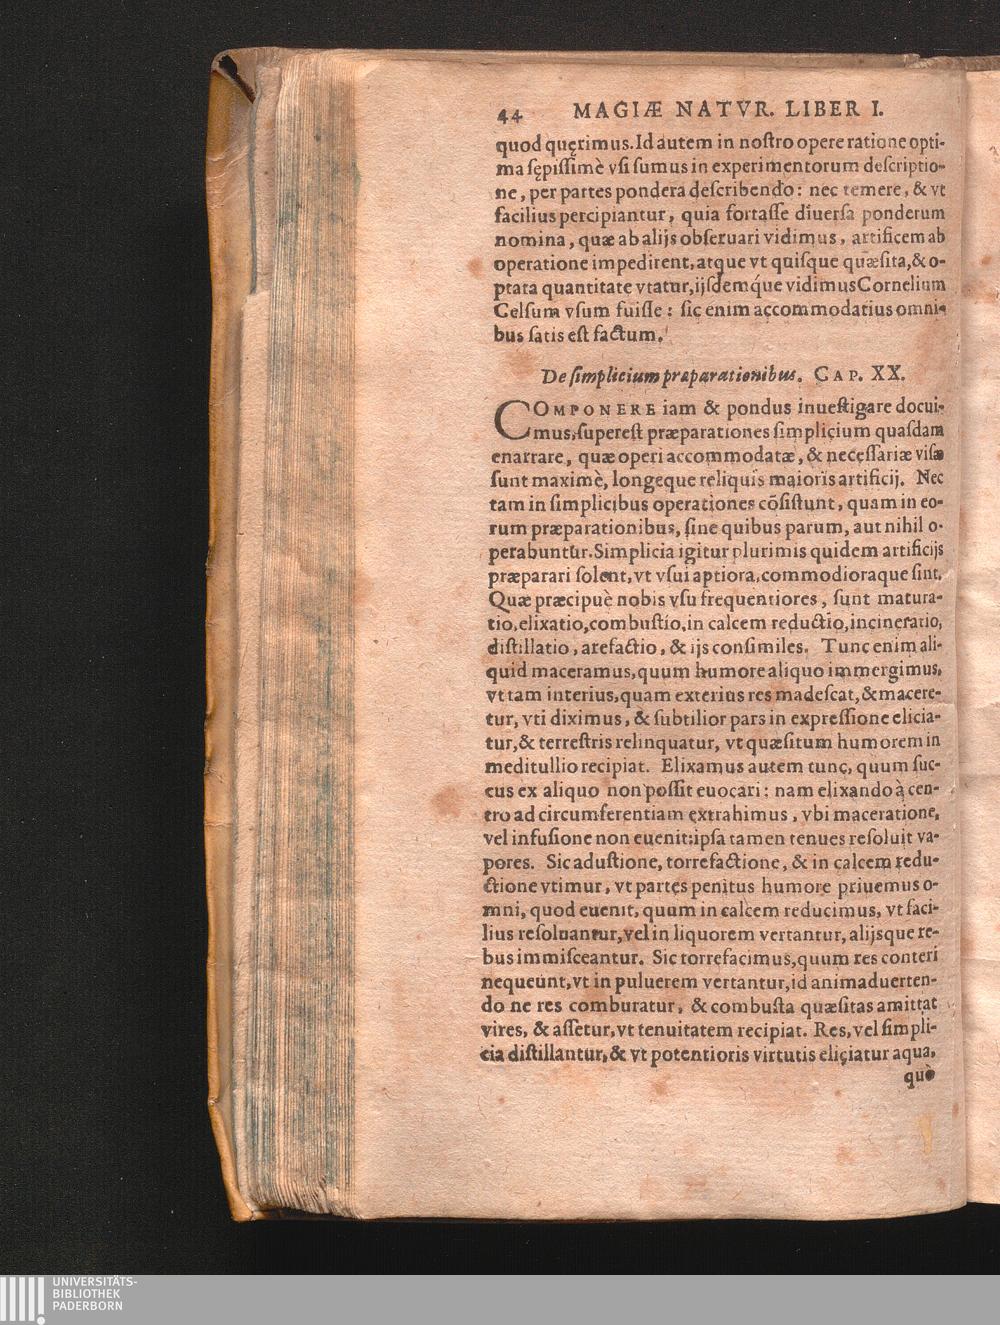 44 MAGIÆ NATVR. LIBER I.
quod quęrimus. Id autem in noſtro opere ratione opti-
ma ſępiſſimè vſi ſumus in experimentorum deſcriptio-
ne, per partes pondera deſcribendo: nec temere, & vt
facilius percipiantur, quia fortaſſe diuerſa ponderum
nomina, quæ ab alijs obſeruari vidimus, artificem ab
operatione impedirent, atque vt quiſque quæſita, & o-
ptata quantitate vtatur, ijſdemq́ue vidimus Cornelium
Celſum vſum fuiſſe: ſic enim accommodatius omni-
bus ſatis eſt factum.
De ſimplicium præparationibus. CAP. XX.
COMPONERE iam & pondus inueſtigare docui-
mus, ſupereſt præparationes ſimplicium quaſdam
enarrare, quæ operi accommodatæ, & neceſſariæ viſæ
ſunt maximè, longeque reliquis maioris artificij. Nec
tam in ſimplicibus operationes cõſiſtunt, quam in eo-
rum præparationibus, ſine quibus parum, aut nihil o-
perabuntur. Simplicia igitur plurimis quidem artificijs
præparari ſolent, vt vſui aptiora, commodioraque ſint.
Quæ præcipuè nobis vſu frequentiores, ſunt matura-
tio, elixatio, combuſtio, in calcem reductio, incineratio,
diſtillatio, arefactio, & ijs conſimiles. Tunc enim ali-
quid maceramus, quum humore aliquo immergimus,
vt tam interius, quam exterius res madeſcat, & macere-
tur, vti diximus, & ſubtilior pars in expreſſione elicia-
tur, & terreſtris relinquatur, vt quæſitum humorem in
meditullio recipiat. Elixamus autem tunc, quum ſuc-
cus ex aliquo non poſſit euocari: nam elixando à cen-
tro ad circumferentiam extrahimus, vbi maceratione,
vel infuſione non euenit: ipſa tamen tenues reſoluit va-
pores. Sic aduſtione, torrefactione, & in calcem redu-
ctione vtimur, vt partes penitus humore priuemus o-
mni, quod euenit, quum in calcem reducimus, vt faci-
lius reſoluantur, vel in liquorem vertantur, alijsque re-
bus immiſceantur. Sic torrefacimus, quum res conteri
nequeunt, vt in puluerem vertantur, id animaduerten-
do ne res comburatur, & combuſta quæſitas amittat
vires, & aſſetur, vt tenuitatem recipiat. Res, vel ſimpli-
cia diſtillantur, & vt potentioris virtutis eliciatur aqua,
què
UNIVERSITÄTS-
BIBLIOTHEK
PADERBORN